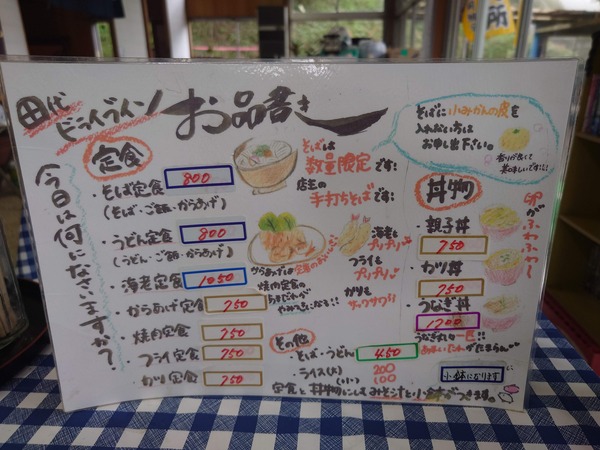 田代
ドライブイン
お品書き
今日は何になさいますか?
定食
・そば定食 800
(そば・ご飯・からあげ)
・うどん定食 800
(うどん・ご飯・からあげ)
・海老定食 1050
・からあげ定食 750
・焼肉定食 750
・フライ定食 750
・カツ定食 750
そばは
数量限定です!
店主の
手打ちそばです!
海老も
プリプリ
フライも
プリプリ
カツも
サックサク!!
からあげは
焼肉定食の
やみつきになる!!
その他
・そば・うどん 450
・ライス(大) 200
(小) 100
定食と丼物にはみそ汁と小鉢がつきます。
そばに小みかんの皮を
入れない方は
お申し出下さい。
香りが良くて
美味しいですよ!
丼物
卵がふわふわ
・親子丼
750
・カツ丼
750
・うなぎ丼
1700
うなぎ
あまいたれがたまらん
小鉢になります
所